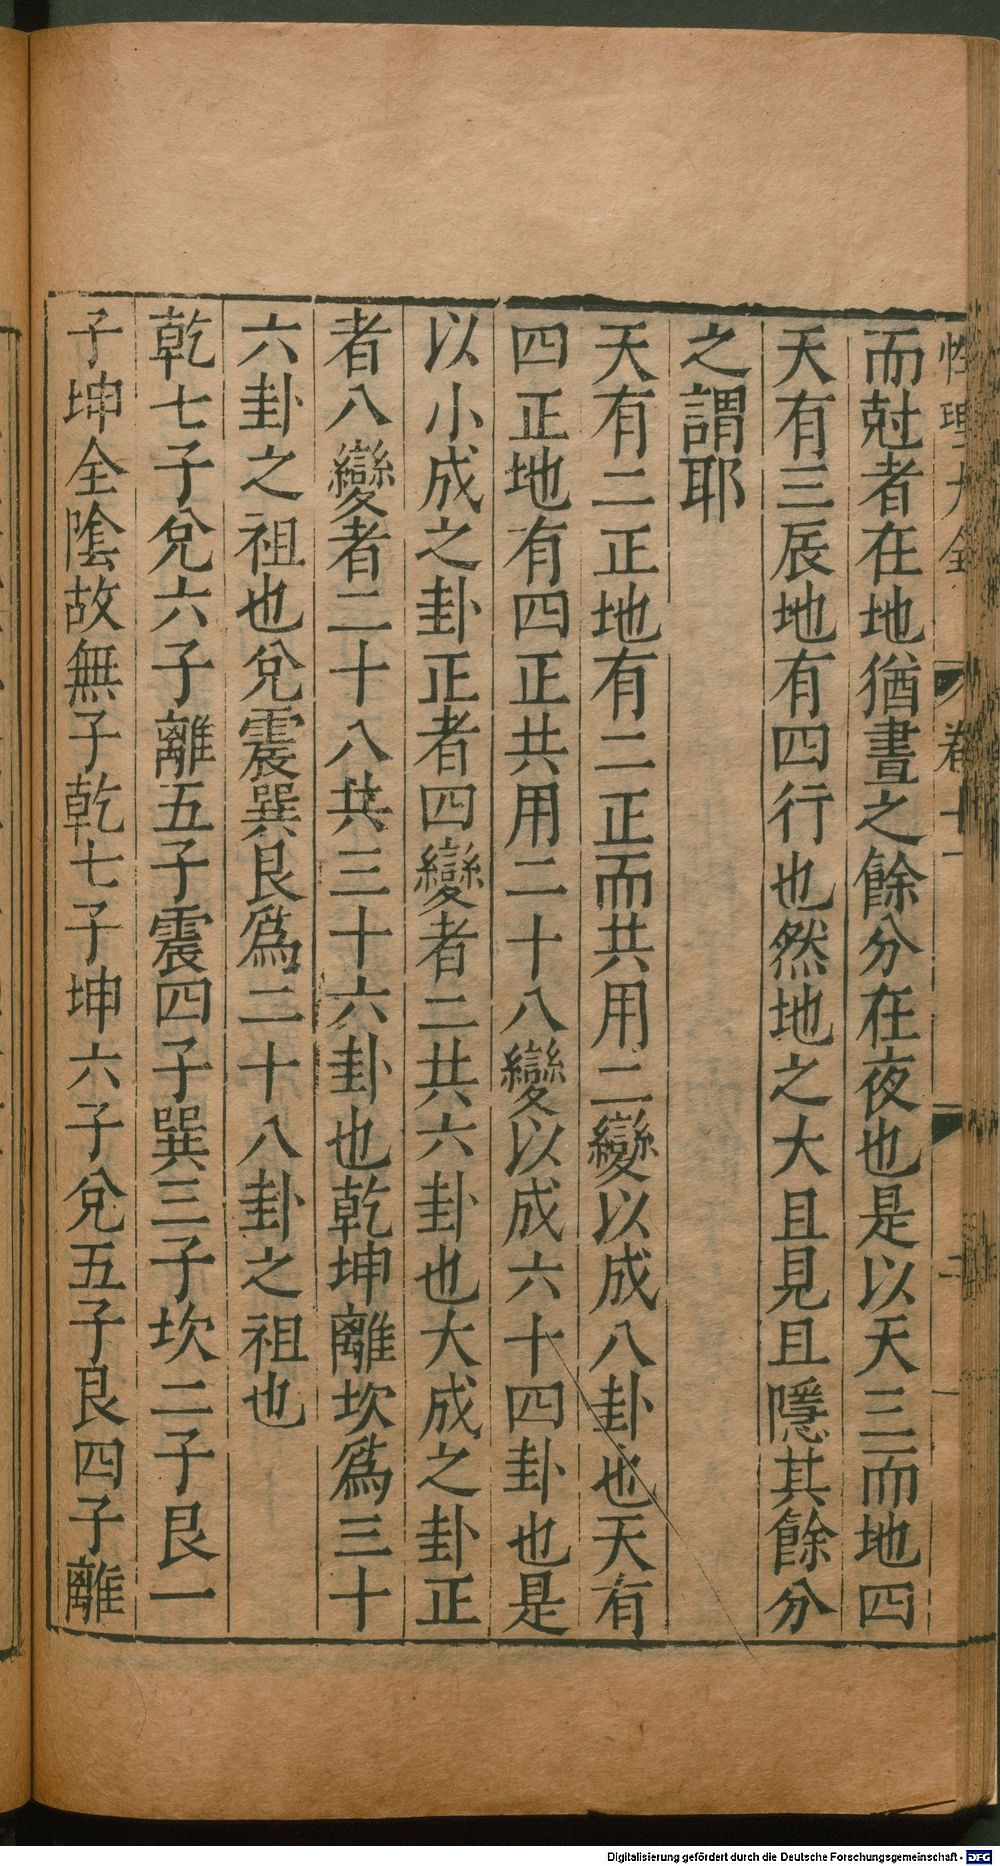 性理大全 卷十一 二
而尅者在地猶晝之餘分在夜也是以天三而地四
天有三辰地有四行也然地之大且見且隱其餘分
之謂耶
天有二正地有二正而共用二變以成八卦也天有
四正地有四正共用二十八變以成六十四卦也是
以小成之卦正者四變者二共六卦也大成之卦正
者八變者二十八共三十六卦也乾坤離坎爲三十
六卦之祖也兌震巽艮爲二十八卦之祖也
乾七子兌六子離五子震四子巽三子坎二子艮一
子坤全陰故無子乾七子坤六子兌五子艮四子離
Digitalisierung gefördert durch die Deutsche Forschungsgemeinschaft - DFG